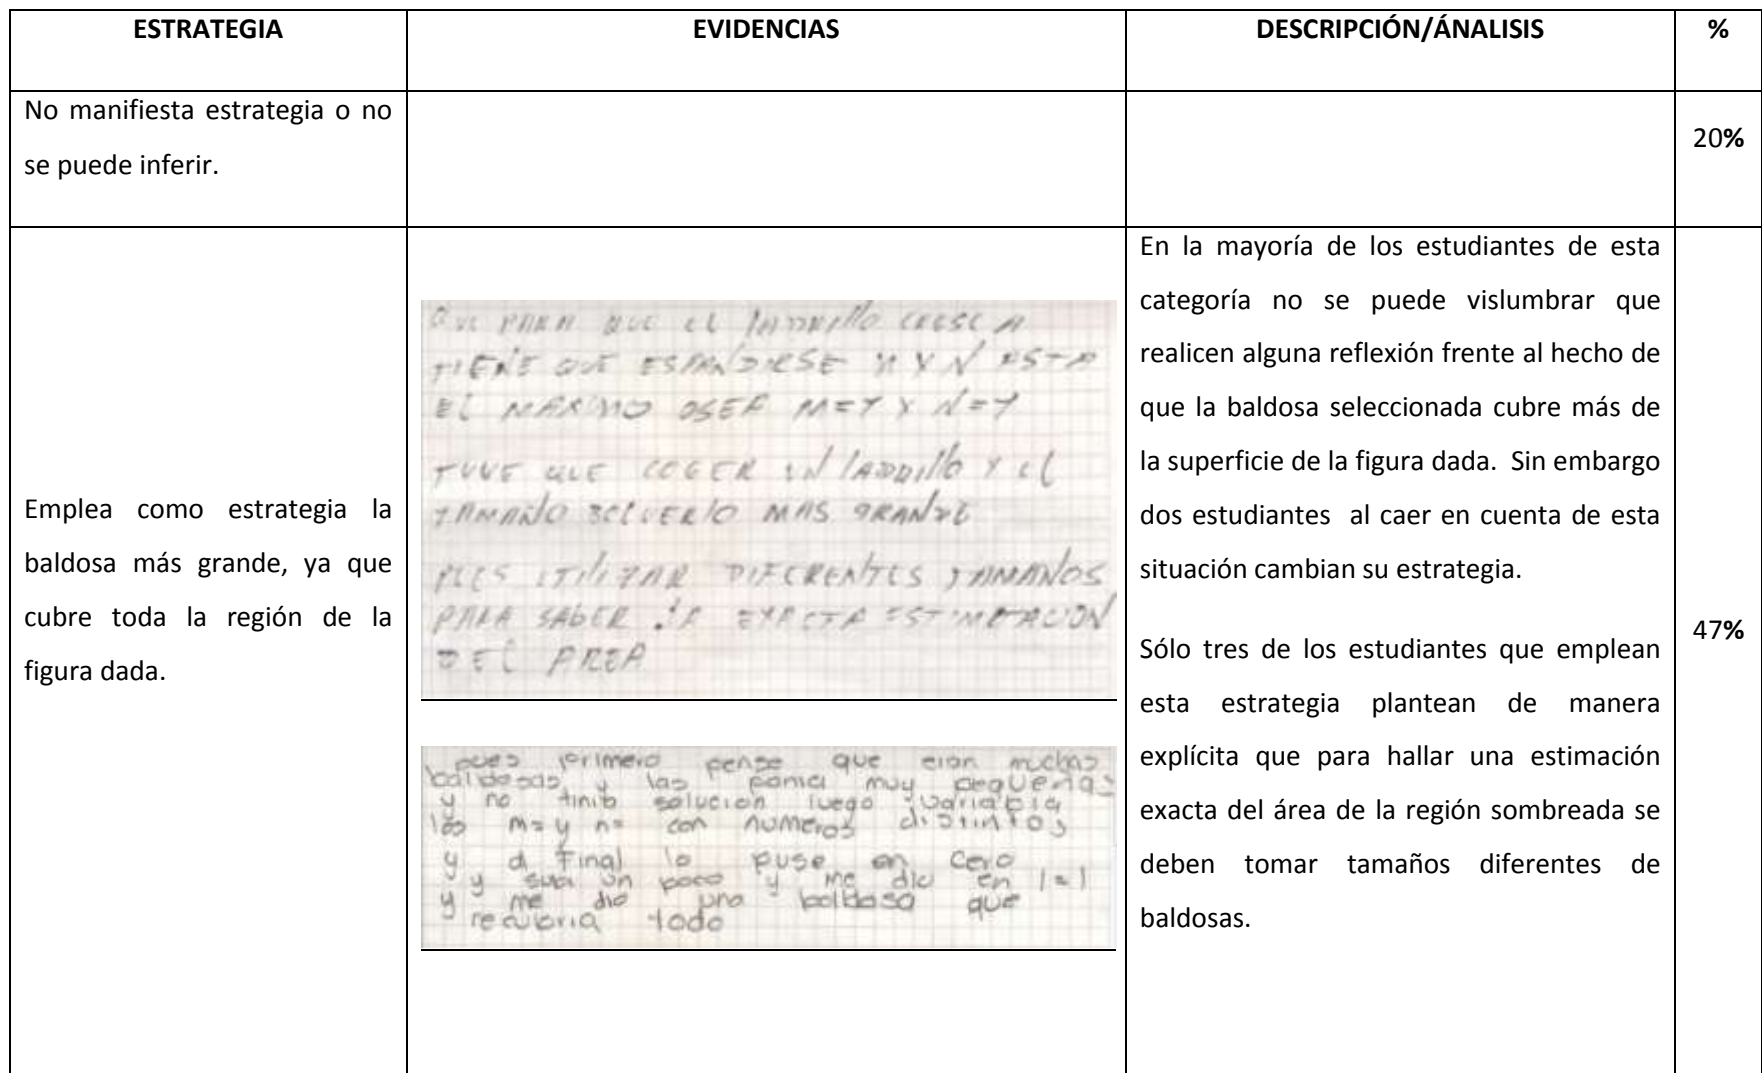 ESTRATEGIA
EVIDENCIAS
DESCRIPCIÓN/ÁNALISIS
%
No manifiesta estrategia o no
se puede inferir.
20%
Emplea como estrategia la
baldosa más grande, ya que
cubre toda la región de la
figura dada.
QUE PARA QUE EL ladrillo CRESCA
TIENE QUE ESPANDIRSE M Y N ESTA
EL MAXIMO OSEA M=Y Y N=Y
TUVE QUE COGER UN lADRillo Y El
TAMAÑO BOLVERlO MAS GRANDE
PUES UTILIZAR DIFERENTES TAMAÑOS
PARA SABER LA EXACTA ESTIMACION
DEL AREA
pues primero pense que eran muchas
baldosas y las ponia muy pequeñas
y no solucion luego variaba
los m= y n= con numeros distintos
y al final lo puse en cero
y subi un poco y me dio en 1=1
y me dio una baldosa que
recubria todo
En la mayoría de los estudiantes de esta
categoría no se puede vislumbrar que
realicen alguna reflexión frente al hecho de
que la baldosa seleccionada cubre más de
la superficie de la figura dada. Sin embargo
dos estudiantes al caer en cuenta de esta
situación cambian su estrategia.
Sólo tres de los estudiantes que emplean
esta estrategia plantean de manera
explícita que para hallar una estimación
exacta del área de la región sombreada se
deben tomar tamaños diferentes de
baldosas.
47%